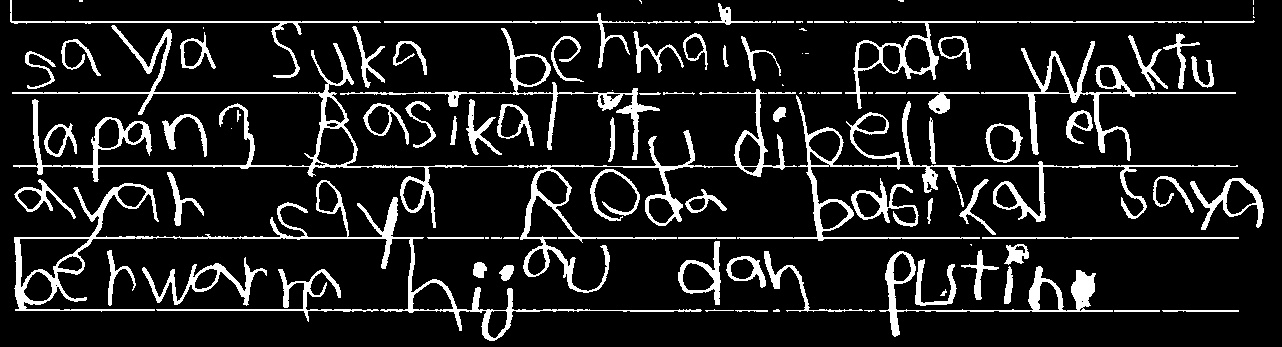 saya Suka bermain pada Waktu
lapang Basikal itu dibeli oleh
ayah saya Roda basikal saya
berwarna hijau dan putih.